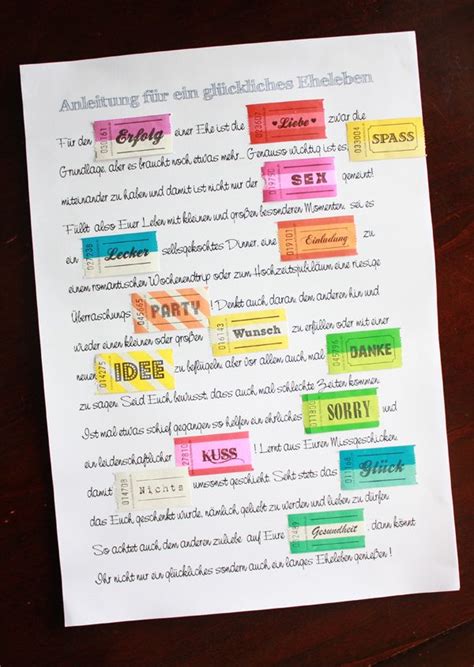 Anleitung für ein glückliches Eheleben
Für den Erfolg einer Ehe ist die Liebe zwar die SPASS
Grundlage, aber es braucht noch etwas mehr. Genauso wichtig ist es,
miteinander zu haben und damit ist nicht nur der SEX gemeint!
Füllt also Euer Leben mit kleinen und großen besonderen Momenten, sei es
ein Lecker selbsgekochtes Dinner, eine Einladung zu
einem romantischen Wochenendtrip oder zum Hochzeitsjubiläum eine riesige
Überraschungs PARTY! Denkt auch daran dem anderen hin und
wieder einen kleinen oder großen Wunsch zu erfüllen oder mit einer
neuen IDEE zu beflügeln, aber vor allem auch mal DANKE
zu sagen. Seid Euch bewusst, dass auch mal schlechte Zeiten kommen.
Ist mal etwas schief gegangen so helfen ein ehrliches SORRY und
ein leidenschaftlicher KUSS! Lernt aus Euren Missgeschicken,
damit Nichts umsonst geschieht. Seht stets das Glück,
das Euch geschenkt wurde, nämlich geliebt zu werden und lieben zu dürfen.
So achtet auch dem anderen zuliebe auf Eure Gesundheit, dann könnt
Ihr nicht nur ein glückliches sondern auch ein langes Eheleben genießen!